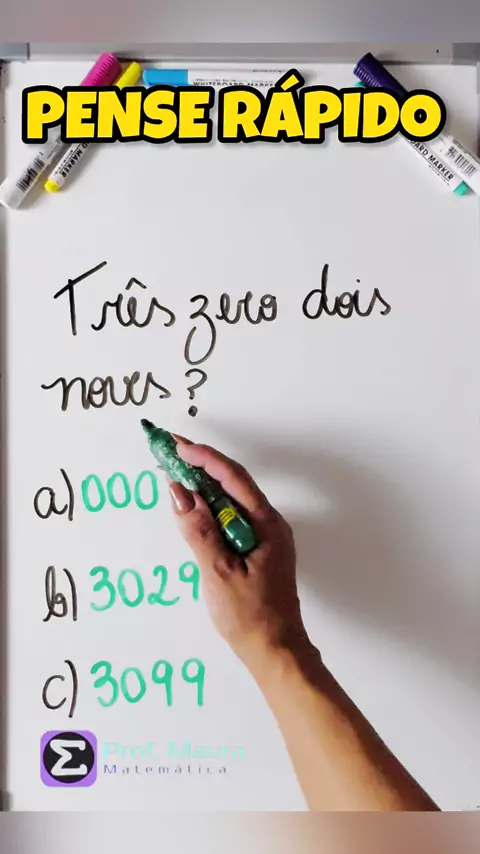 PENSE RÁPIDO
WHITEBOARD MARKER
BOARD MARKER
Três zero dois
noves?
a) 000
b) 3029
c) 3099
Σ
Prof. Maura
Matemática